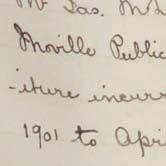 Mr Jas. McK
Moville Public
-iture incurr
1901 to Apri